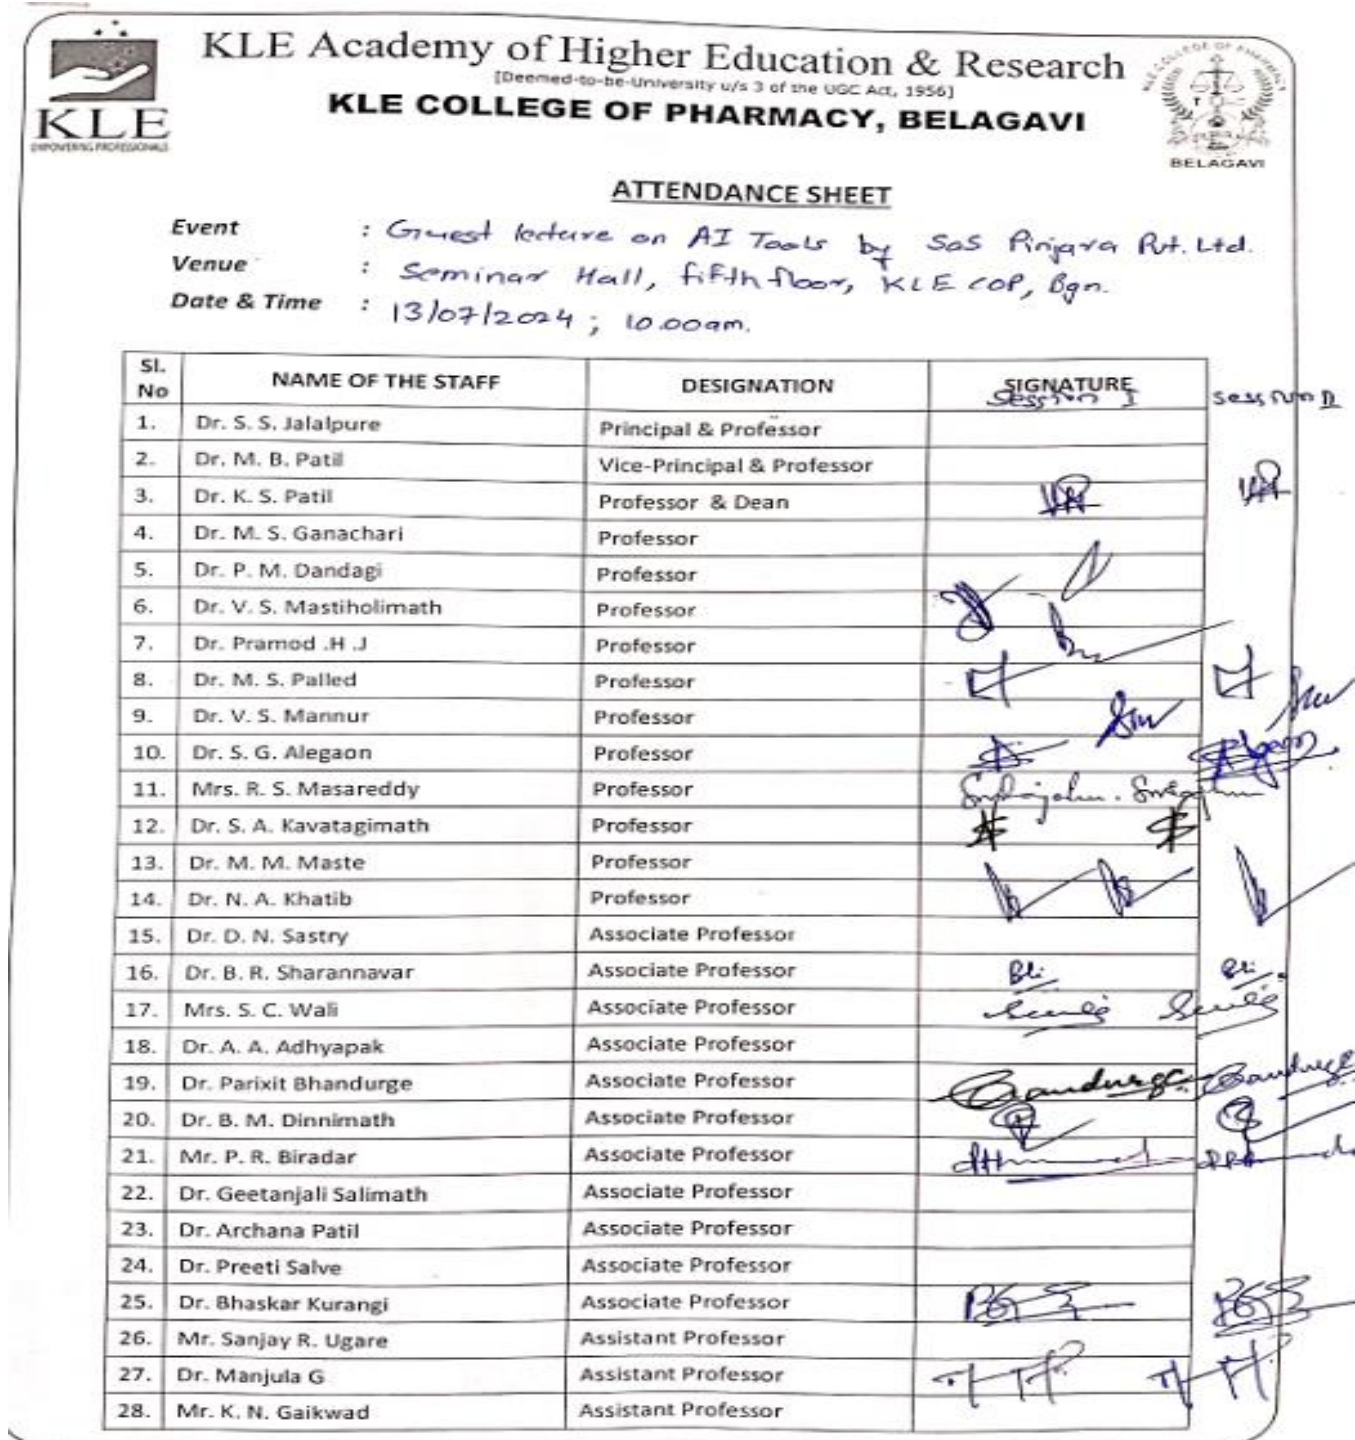 KLE Academy of Higher Education & Research
[Deemed-to-be-University u/s 3 of the UGC Act, 1956]
KLE COLLEGE OF PHARMACY, BELAGAVI
KLE
EMPOWERING PROFESSIONALS
KLE COLLEGE OF PHARMACY
BELAGAVI
ATTENDANCE SHEET
Event : Guest lecture on AI Tools by SoS Pinjara Pvt. Ltd.
Venue : Seminar Hall, fifth floor, KLE COP, Bgn.
Date & Time : 13/07/2024 ; 10.00am.
Sl. No NAME OF THE STAFF DESIGNATION SIGNATURE Session I Session II
1. Dr. S. S. Jalalpure Principal & Professor
2. Dr. M. B. Patil Vice-Principal & Professor
3. Dr. K. S. Patil Professor & Dean
4. Dr. M. S. Ganachari Professor
5. Dr. P. M. Dandagi Professor
6. Dr. V. S. Mastiholimath Professor
7. Dr. Pramod .H .J Professor
8. Dr. M. S. Palled Professor
9. Dr. V. S. Mannur Professor
10. Dr. S. G. Alegaon Professor
11. Mrs. R. S. Masareddy Professor
12. Dr. S. A. Kavatagimath Professor
13. Dr. M. M. Maste Professor
14. Dr. N. A. Khatib Professor
15. Dr. D. N. Sastry Associate Professor
16. Dr. B. R. Sharannavar Associate Professor
17. Mrs. S. C. Wali Associate Professor
18. Dr. A. A. Adhyapak Associate Professor
19. Dr. Parixit Bhandurge Associate Professor
20. Dr. B. M. Dinnimath Associate Professor
21. Mr. P. R. Biradar Associate Professor
22. Dr. Geetanjali Salimath Associate Professor
23. Dr. Archana Patil Associate Professor
24. Dr. Preeti Salve Associate Professor
25. Dr. Bhaskar Kurangi Associate Professor
26. Mr. Sanjay R. Ugare Assistant Professor
27. Dr. Manjula G Assistant Professor
28. Mr. K. N. Gaikwad Assistant Professor